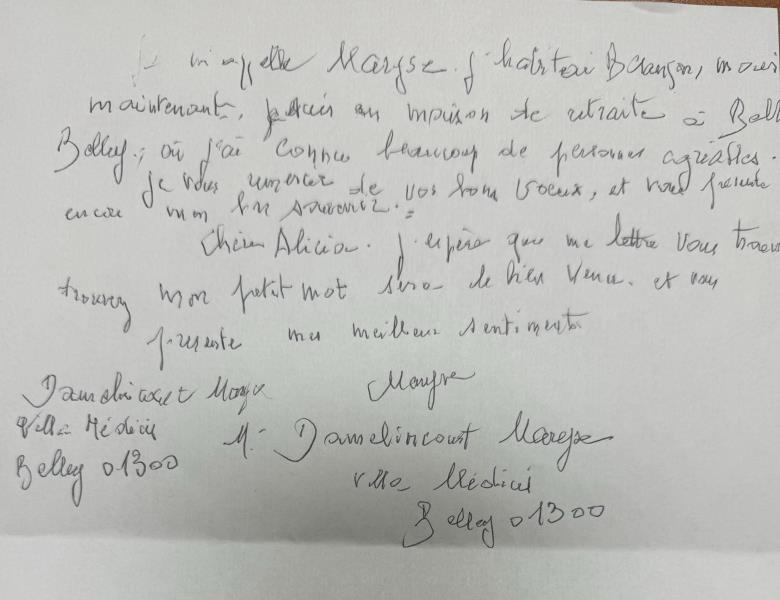 Je m'appelle Maryse. j'habitai Besançon, mais
maintenant, je suis en maison de retraite à Bell
Belley, où j'ai connu beaucoup de personnes agréables.
je vous remercie de vos bons voeux, et vous présente
encore mon bon souvenir.
Chère Alicia. j'espère que ma lettre vous trouv
trouvez mon petit mot sera le bien venu. et vous
présente mes meilleurs sentiments
Maryse
Damelincourt Maryse
Villa Médicis
Belley 01300
M. Damelincourt Maryse
Villa Médicis
Belley 01300